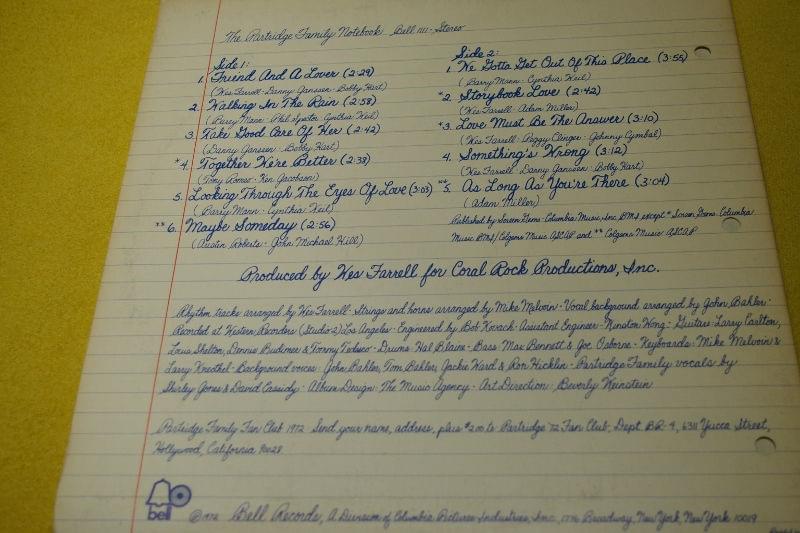 The Partridge Family Notebook Bell 1111 - Stereo
Side 1:
1. Friend And A Lover (2:29)
(Wes Farrell - Danny Janssen - Bobby Hart)
2. Walking In The Rain (2:58)
(Barry Mann - Phil Spector Cynthia Weil)
3. Take Good Care Of Her (2:42)
(Danny Janssen - Bobby Hart)
*4. Together We're Better (2:38)
(Tony Romeo - Ken Jacobson)
5. Looking Through The Eyes Of Love (3:03)
(Barry Mann - Cynthia Weil)
**6. Maybe Someday (2:56)
(Austin Roberts - John Michael Hill)
Side 2:
1. We Gotta Get Out Of This Place (3:55)
(Barry Mann - Cynthia Weil)
*2. Storybook Love (2:42)
(Wes Farrell - Adam Miller)
*3. Love Must Be The Answer (3:10)
(Wes Farrell - Peggy Clinger - Johnny Cymbal)
4. Something's Wrong (3:12)
(Wes Farrell Danny Janssen - Bobby Hart)
**5. As Long As You're There (3:04)
(Adam Miller)
Published by Screen Gems-Columbia Music, Inc BMI except * Screen Gems-Columbia
Music BMI/Colgems Music ASCAP and ** Colgems Music ASCAP
Produced by Wes Farrell for Coral Rock Productions, Inc.
Rhythm tracks arranged by Wes Farrell - Strings and horns arranged by Mike Melvoin - Vocal background arranged by John Bahler -
Recorded at Western Recorders (Studio 2) Los Angeles - Engineered by Bob Kovach - Assistant Engineer - Winston Wong - Guitars: Larry Carlton,
Louie Shelton, Dennis Budimer & Tommy Tedesco - Drums: Hal Blaine - Bass: Max Bennett & Joe Osborne - Keyboards: Mike Melvoin &
Larry Knechtel - Background voices: John Bahler, Tom Bahler, Jackie Ward & Ron Hicklin - Partridge Family vocals by
Shirley Jones & David Cassidy - Album Design: The Music Agency - Art Direction: Beverly Weinstein
Partridge Family Fan Club 1972 Send your name, address, plus $2.00 to Partridge '72 Fan Club, Dept. BR-4, 6311 Yucca Street,
Hollywood, California 90028
bell
©1972 Bell Records, A Division of Columbia Pictures Industries, Inc., 1776 Broadway, New York, New York 10019